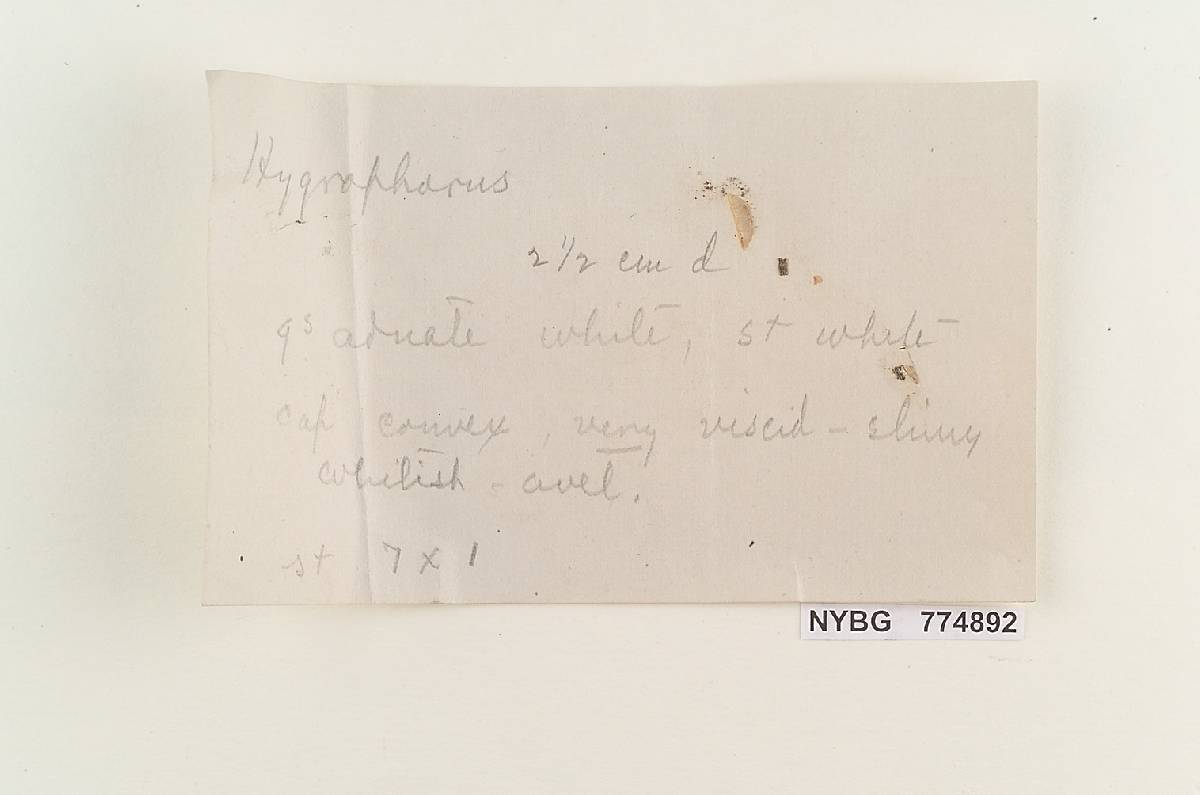 Hygrophorus
2 1/2 cm d
gs adnate white, st white
cap convex, very viscid - slimy
whitish - avel.
st 7 x 1
NYBG 774892